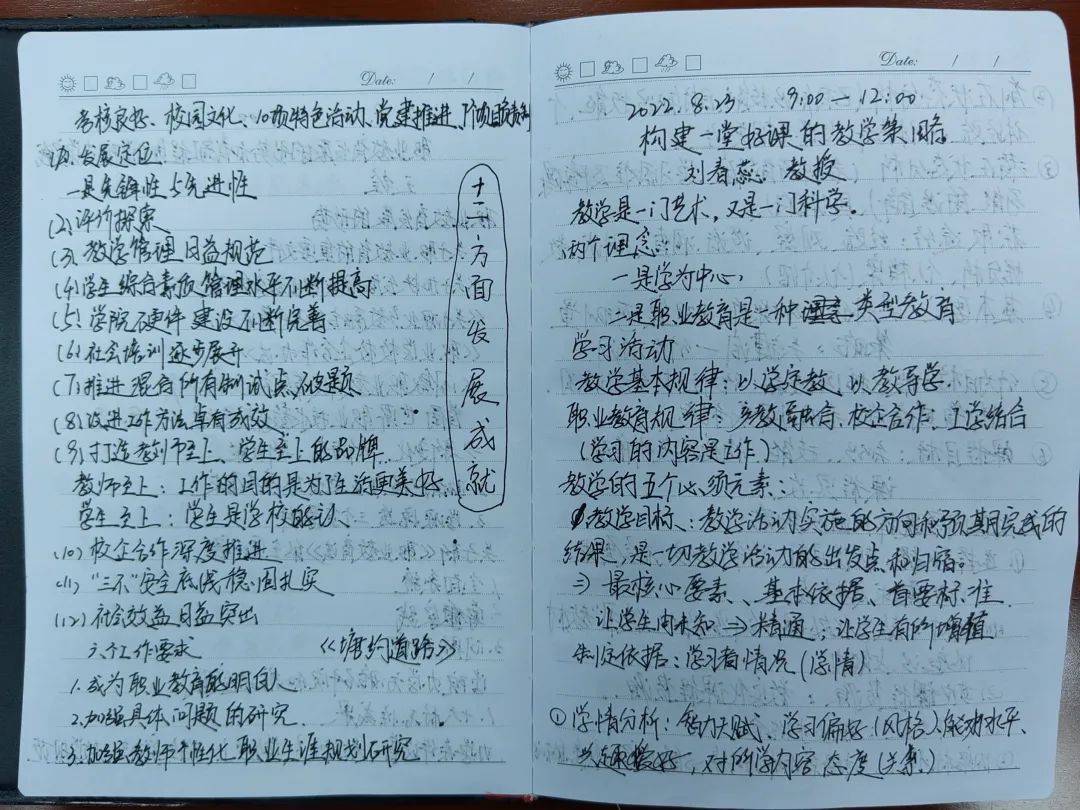 Date: / /
考核良好、校园文化、10项特色活动、党建推进、
(1)、发展定位
一是先锋性与先进性
(2)评价探索
(3)教学管理日益规范
(4)学生综合素质管理水平不断提高
(5)学院硬件建设不断完善
(6)社会培训逐步展开
(7)推进混合所有制试点改题
(8)改进工作方法卓有成效
(9)打造教师至上、学生至上的品牌
教师至上:工作的目的是为了生活更美好
学生至上:学生是学校的
(10)校企合作深度推进
(11)“三不”安全底线稳固扎实
(12)社会效益日益突出
六个工作要求 《塘约道路》
1.成为职业教育的明白人
2.加强具体问题的研究
3.加强教师个性化职业生涯规划研究
十二方面发展成就
Date: / /
2022.8.23 9:00—12:00
构建一堂好课的教学策略
刘春蕊 教授
教学是一门艺术,又是一门科学。
两个理念:
一是学为中心,
二是职业教育是一种类型教育
学习活动
教学基本规律:以学定教 以教导学.
职业教育规律:产教融合、校企合作、工学结合
(学习的内容是工作)
教学的五个必须元素:
教学目标:教学活动实施的方向和预期完成的
结果,是一切教学活动的出发点和归宿。
⇒ 最核心要素、基本依据、首要标准
让学生由未知⇒精通;让学生有所增值
制定依据:学习者情况(学情)
①学情分析:智力天赋、学习偏好(风格)、能动水平、
兴趣 好,对所学内容态度(关系)